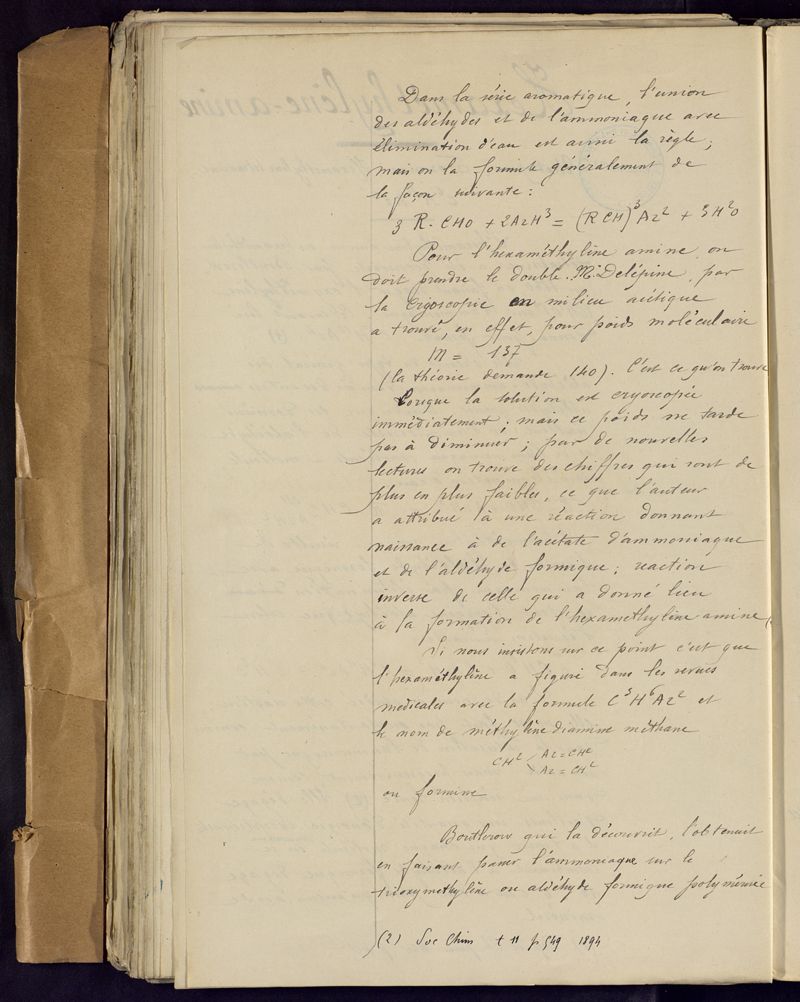 Dans la série aromatique, l'union
des aldéhydes et de l'ammoniaque avec
élimination d'eau est aussi la règle;
mais on la formule généralement de
la façon suivante:
3 R. CHO + 2AzH³ = (RCH)³Az² + 3H²O
Pour l'hexaméthylène amine, on
doit prendre le double. Mr Delépine, par
la cryoscopie en milieu acétique
a trouvé, en effet, pour poids moléculaire
M = 137
(la théorie demande 140). C'est ce qu'on trouve
Lorsque la solution est cryoscopée
immédiatement; mais ce poids ne tarde
pas à diminuer; par de nouvelles
lectures on trouve des chiffres qui sont de
plus en plus faibles, ce que l'auteur
a attribué à une réaction donnant
naissance à de l'acétate d'ammoniaque
et de l'aldéhyde formique; reaction
inverse de celle qui a donné lieu
à la formation de l'hexaméthylène amine
Si nous insistons sur ce point c'est que
l'hexaméthylène a figuré dans les revues
medicales avec la formule C³H⁶Az² et
le nom de méthylène diamine méthane
CH² Az=CH²
Az=CH²
ou formine
Boutlerow qui la découvrit, l'obtenait
en faisant passer l'ammoniaque sur le
trioxymethylène ou aldéhyde formique polymérisé
(2) Soc Chim t 11 p 549 1894